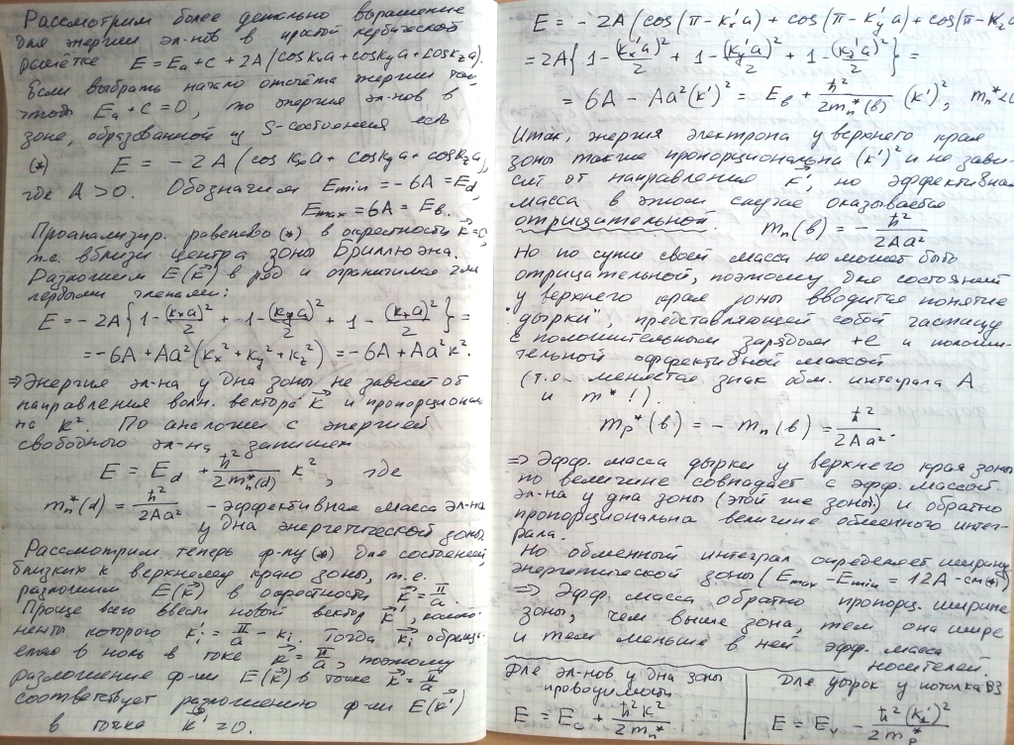 Рассмотрим более детально выражение
для энергии эл-нов в простой кубической
решётке E = Eₐ + c + 2A (cos kₓa + cos k_y a + cos k_z a).
Если выбрать начало отсчёта энергии так,
чтобы Eₐ + c = 0, то энергия эл-нов в
зоне, образованной из S-состояния есть
(*) E = - 2A (cos kₓa + cos k_y a + cos k_z a),
где A > 0. Обозначим E min = -6A = E_d,
E max = 6A = E_в.
Проанализир. равенство (*) в окрестности k⃗=0,
т.е. вблизи центра зоны Бриллюэна.
Разложим E(k⃗) в ряд и ограничимся
первыми членами:
E = - 2A {1 - (kₓa)²/2 + 1 - (k_y a)²/2 + 1 - (k_z a)²/2} =
= -6A + Aa² (kₓ² + k_y² + k_z²) = -6A + Aa²k².
⇒ Энергия эл-на у дна зоны не зависит от
направления волн. вектора k⃗ и пропорционал.
на k². По аналогии с энергией
свободного эл-на запишем
E = E_d + ħ²/2m*ₙ(d) k², где
m*ₙ(d) = ħ²/2Aa² - эффективная масса эл-на
у дна энергетической зоны.
Рассмотрим теперь ф-лу (*) для состояний,
близких к верхнему краю зоны, т.е.
разложим E(k⃗) в окрестности k⃗ = π/a.
Проще всего ввести новый вектор k⃗', компо-
ненты которого k'ᵢ = π/a - kᵢ. Тогда k⃗'ᵢ обраща-
ется в ноль в точке k⃗ = π/a, поэтому
разложение ф-ии E(k⃗) в точке k⃗ = π/a
соответствует разложению ф-ии E(k⃗')
в точке k⃗' = 0.
E = - 2A (cos(π - kₓ'a) + cos(π - k_y'a) + cos(π - k_z'a
= 2A {1 - (kₓ'a)²/2 + 1 - (k_y'a)²/2 + 1 - (k_z'a)²/2} =
= 6A - Aa²(k')² = E_в + ħ²/2m*ₙ(в) (k')², mₙ* <0
Итак, энергия электрона у верхнего края
зоны также пропорциональна (k')² и не зави-
сит от направления k⃗', но эффективная
масса в этом случае оказывается
отрицательной. mₙ(в) = - ħ²/2Aa²
Но по сути своей масса не может быть
отрицательной, поэтому для состояний
у верхнего края зоны вводится понятие
"дырки", представляющей собой частицу
с положительным зарядом +e и положи-
тельной эффективной массой
(т.е. меняется знак обм. интеграла A
и m* !).
m_p*(в) = - mₙ(в) = ħ²/2Aa².
⇒ Эфф. масса дырки у верхнего края зоны
по величине совпадает с эфф. массой
эл-на у дна зоны (этой же зоны) и обратно
пропорциональна величине обменного интег-
рала.
Но обменный интеграл определяет ширину
энергетической зоны (E max - E min = 12A - см(*))
⇒ Эфф. масса обратно пропорц. ширине
зоны, чем выше зона, тем она шире
и тем меньше в ней эфф. масса
носителей.
Для эл-нов у дна зоны
проводимости
E = E_c + ħ²k²/2mₙ*
Для дырок у потолка ВЗ
E = E_v - ħ²(k')²/2m_p*